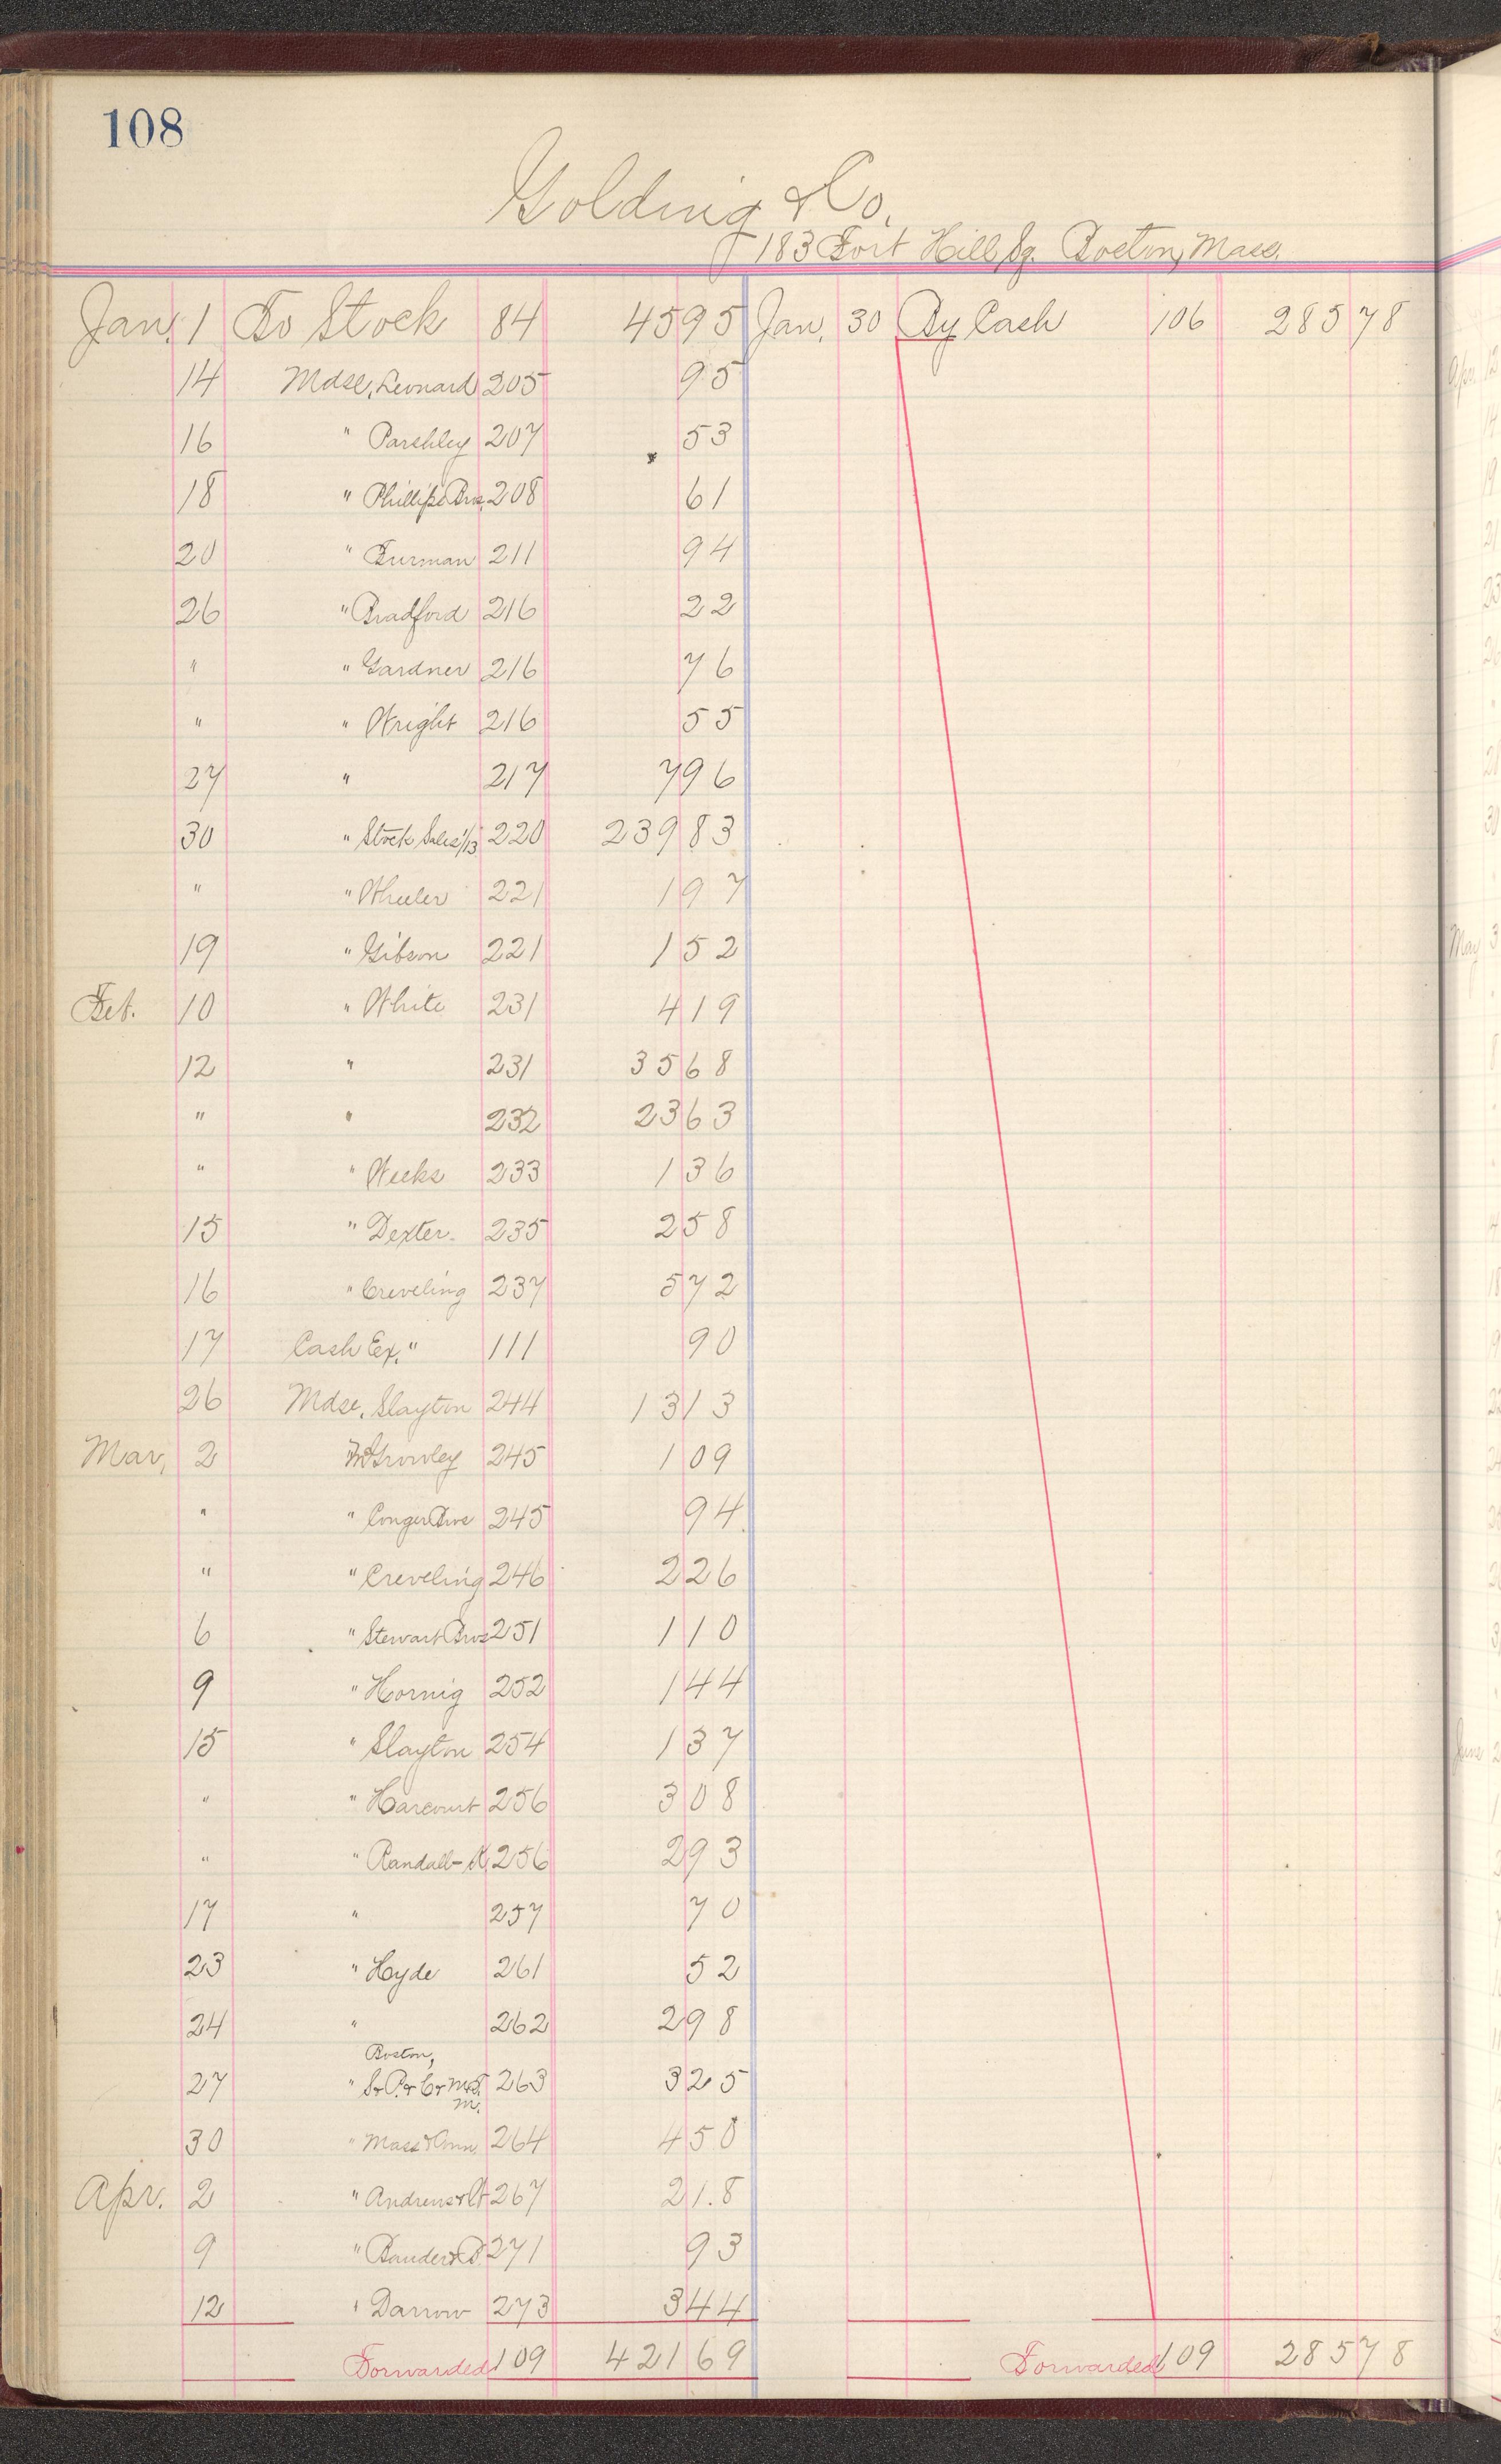 108
Golding & Co.
183 Fort Hill Sq. Boston, Mass.
Jan. 1 To Stock 84 45 95 Jan. 30 By Cash 106 285 78
14 Mdse, Leonard 205 95
16 " Parshley 207 53
18 " Phillips Bros. 208 61
20 " Furman 211 94
26 " Bradford 216 22
" " Gardner 216 76
" " Wright 216 55
27 " 217 7 96
30 " Stock Sales 1/13 220 239 83
" " Wheeler 221 1 97
19 " Gibson 221 1 52
Feb. 10 " White 231 4 19
12 " 231 35 68
" " 232 23 63
" " Weeks 233 1 36
15 " Dexter 235 2 58
16 " Creveling 237 5 72
17 Cash Ex. " 111 90
26 Mdse, Slayton 244 13 13
Mar, 2 245 1 09
" " Conger Bros 245 94
" " Creveling 246 2 26
6 " Stewart Bros 251 1 10
9 " Hornig 252 1 44
15 " Slayton 254 1 37
" " Harcourt 256 3 08
" " Randall- 256 2 93
17 " 257 70
23 " Hyde 261 52
24 " 262 2 98
Boston,
27 " 263 3 25
m.
30 " Mass & Ann 264 4 50
Apr. 2 " Andrews & 267 2 1.8
9 " 271 93
12 " Darrow 273 3 44
Forwarded 109 421 69 Forwarded 109 285 78
Apr. 12
May 3
June 2